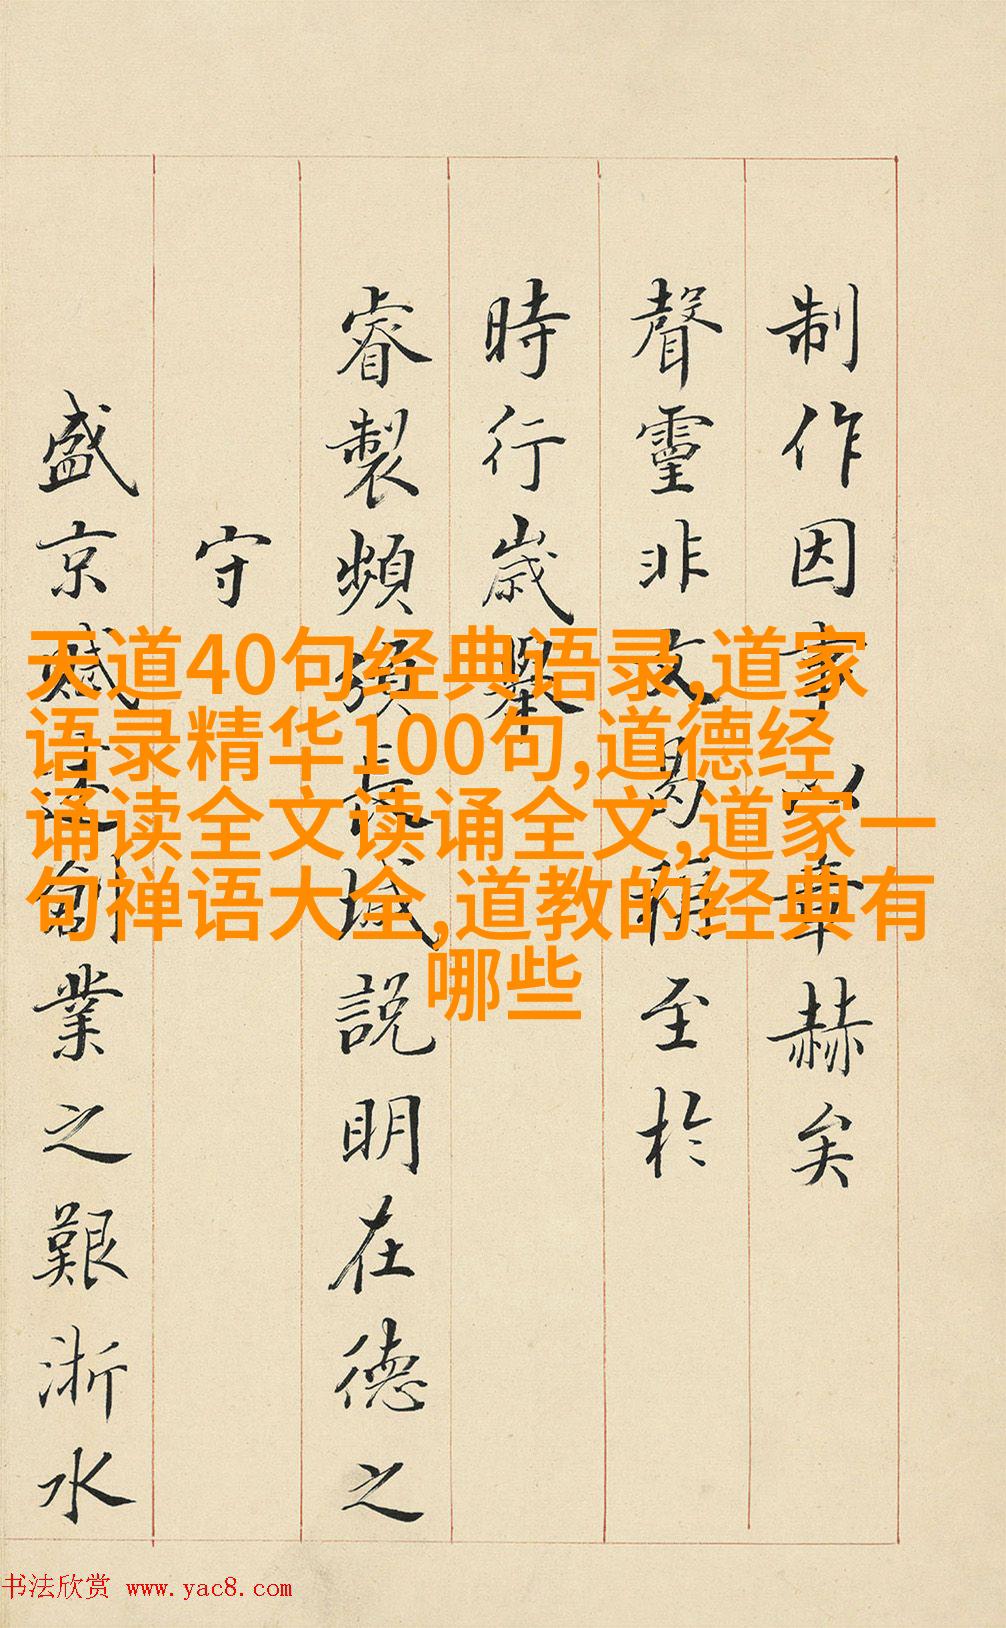 制作因以章赫矣
聲靈非文曷稱至於
時行歲舉
睿製頻頒長城說明在德之
守
盛京賦創業之艱浙水
天道40句经典语录,道家
语录精华100句,道德经
诵读全文读诵全文,道家一
句禅语大全,道教的经典有
哪些
书法欣赏 www.yac8.com